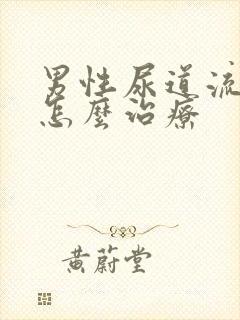 男性尿道流
怎麼治療
黃蔚堂